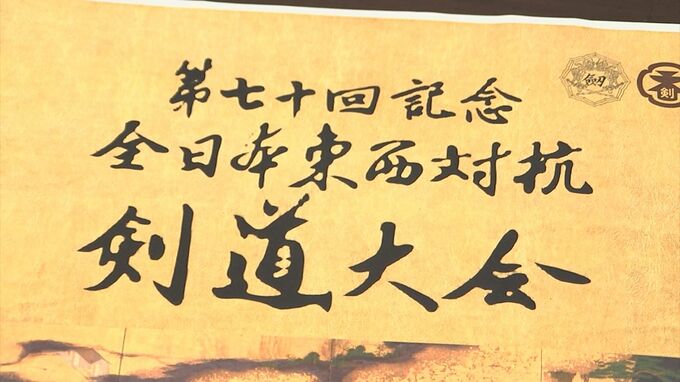 第七十回記念
全日本東西対抗
剣道大会
剣